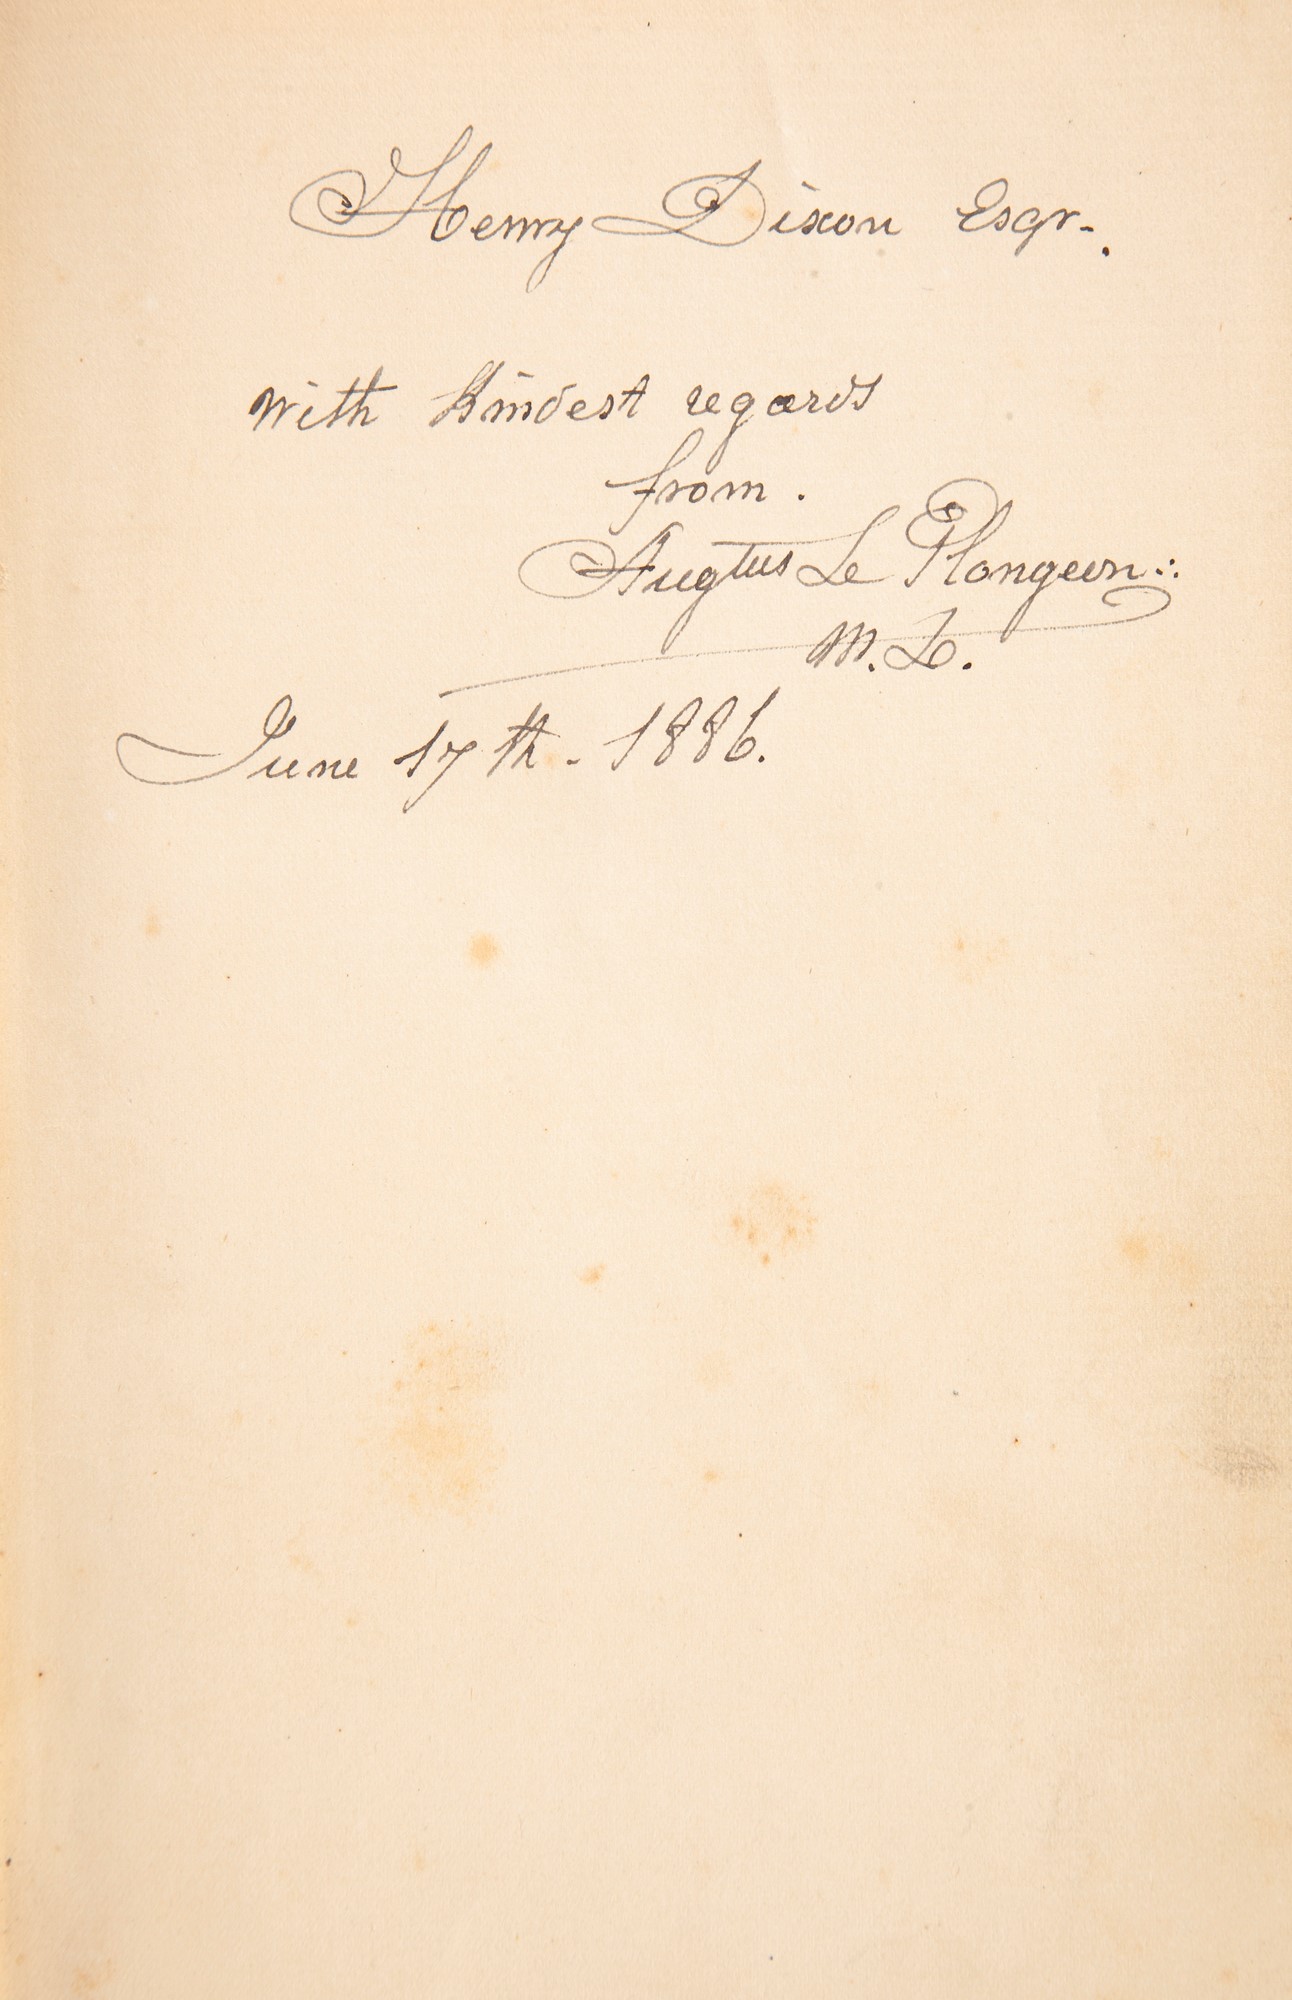 Henry Dixon Esqr.
with kindest regards
from.
Augtus Le Plongeon∴
June 17th - 1886.